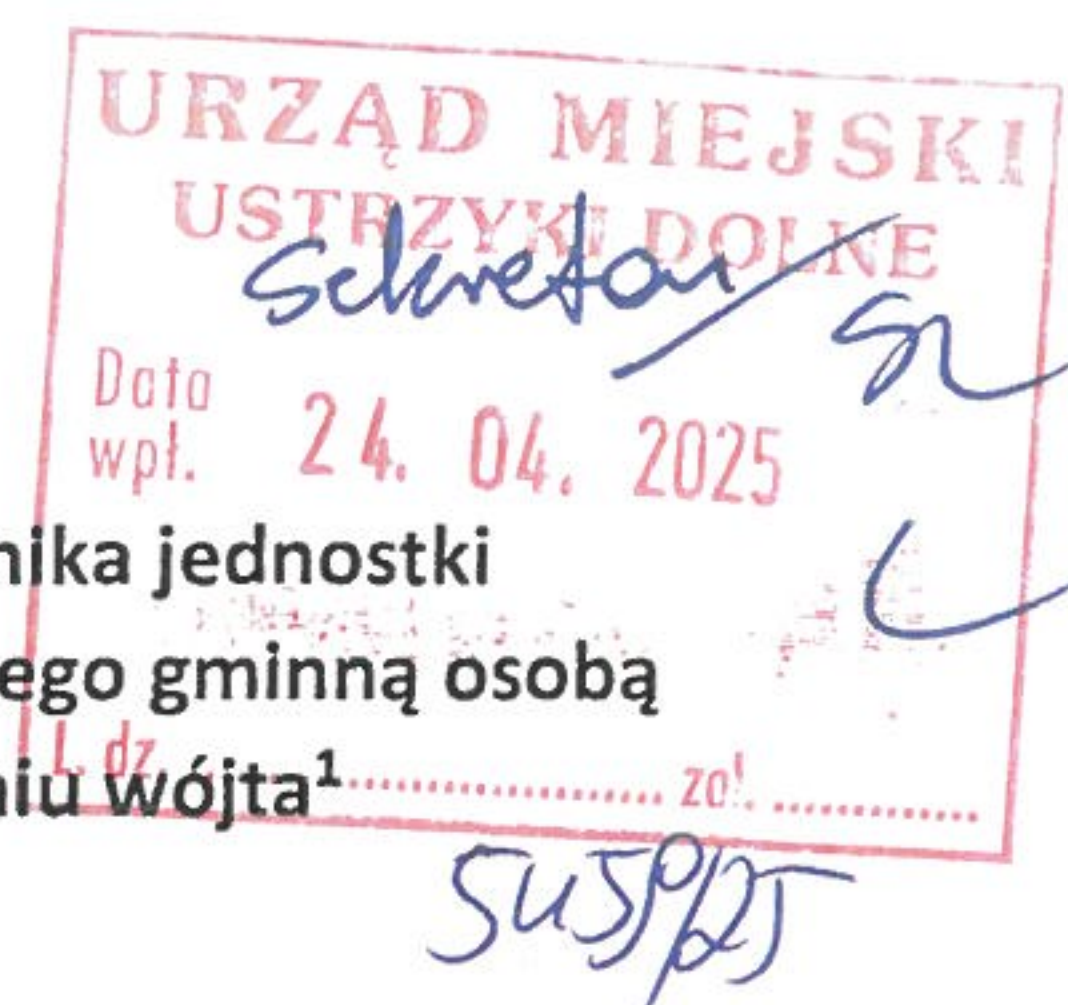 URZĄD MIEJSKI
USTRZYKI DOLNE
Sekretarz
Data
wpł. 24. 04. 2025
nika jednostki
ego gminną osobą
L. dz. zał.
niu wójta¹